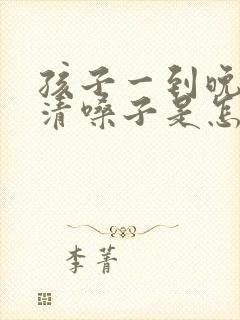 孩子一到晚
清嗓子是怎
李菁